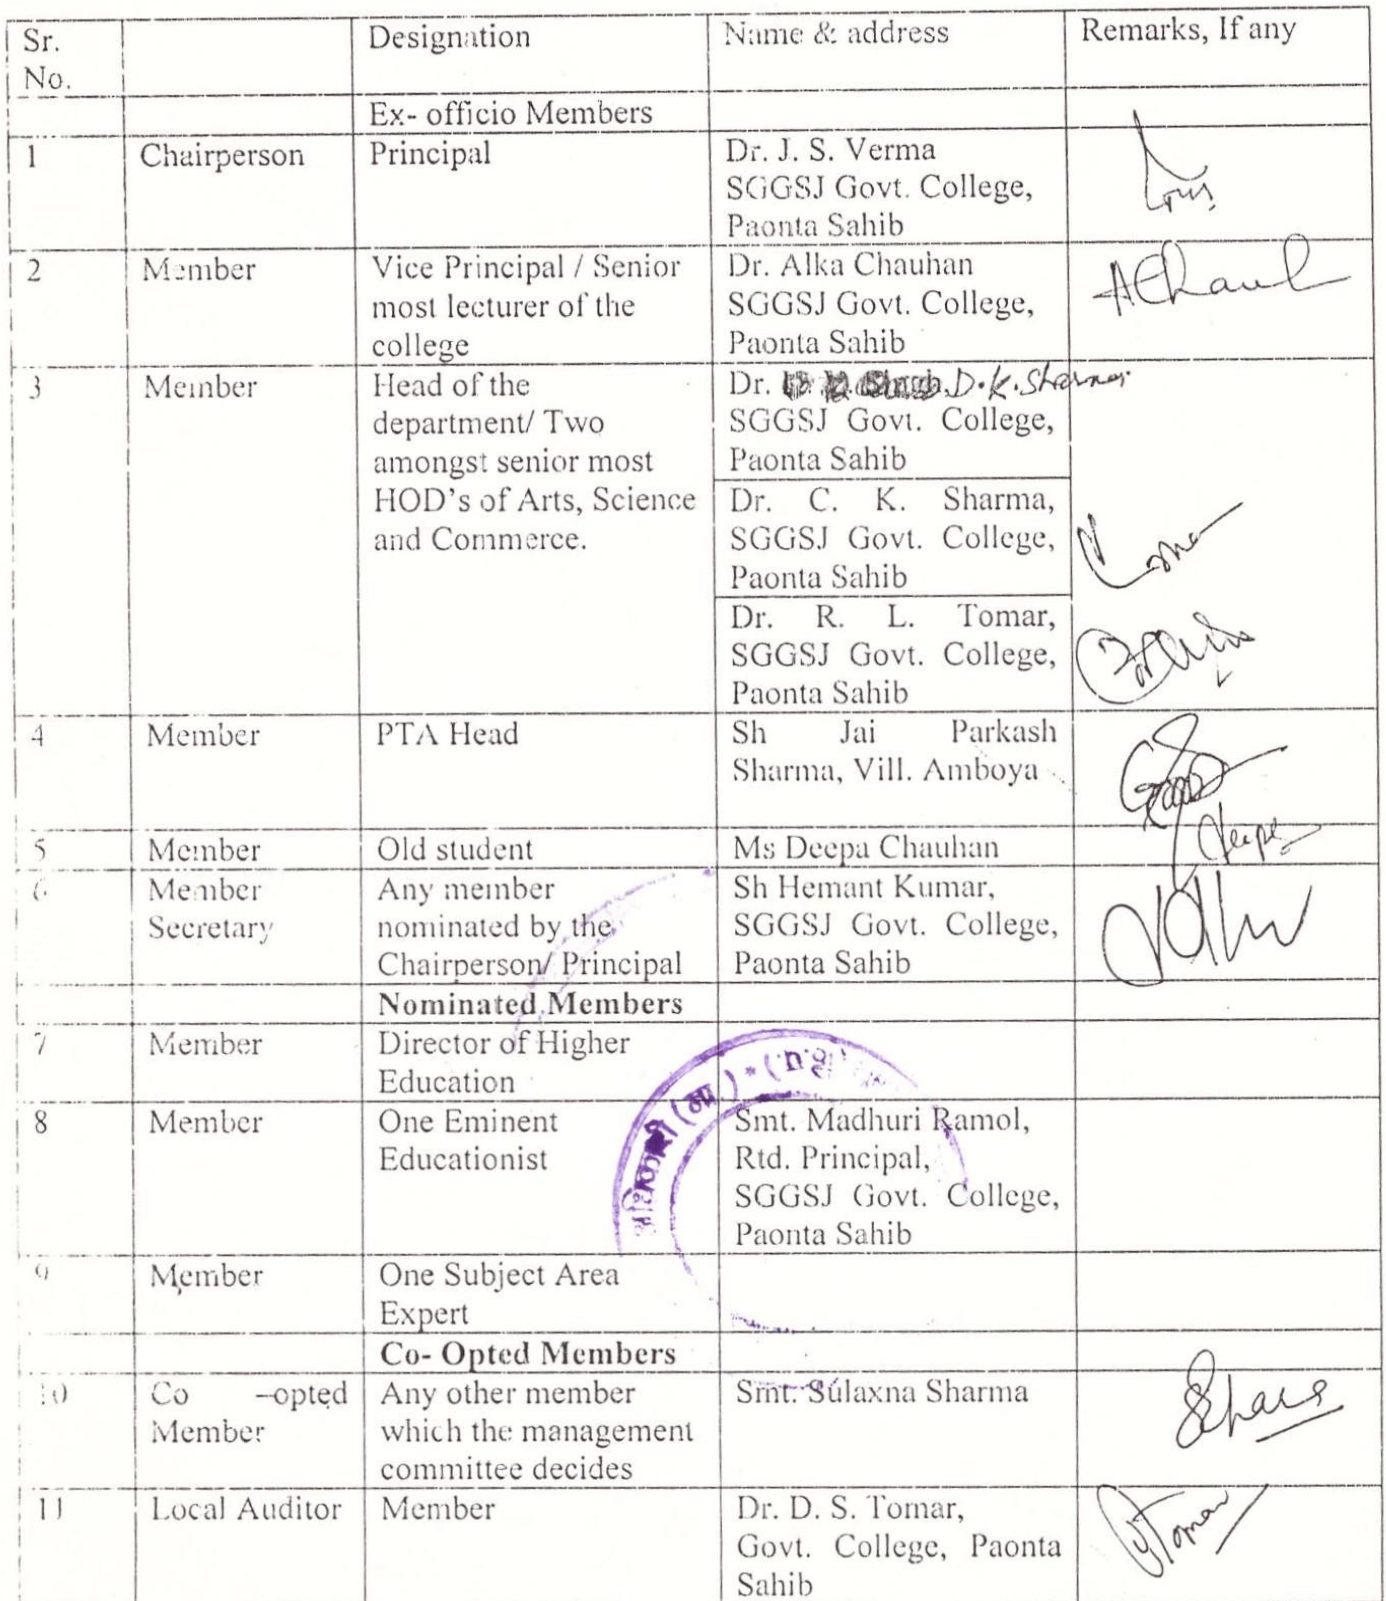 Sr. No. Designation Name & address Remarks, If any
Ex- officio Members
1 Chairperson Principal Dr. J. S. Verma
SGGSJ Govt. College,
Paonta Sahib
2 Member Vice Principal / Senior most lecturer of the college Dr. Alka Chauhan
SGGSJ Govt. College,
Paonta Sahib
AChauh
3 Member Head of the department/ Two amongst senior most HOD's of Arts, Science and Commerce.
Dr. D.K. Sharma
SGGSJ Govt. College,
Paonta Sahib
Dr. C. K. Sharma,
SGGSJ Govt. College,
Paonta Sahib
Dr. R. L. Tomar,
SGGSJ Govt. College,
Paonta Sahib
4 Member PTA Head Sh Jai Parkash
Sharma, Vill. Amboya
5 Member Old student Ms Deepa Chauhan
6 Member Secretary Any member nominated by the Chairperson/ Principal
Sh Hemant Kumar,
SGGSJ Govt. College,
Paonta Sahib
Nominated Members
7 Member Director of Higher Education
8 Member One Eminent Educationist Smt. Madhuri Ramol,
Rtd. Principal,
SGGSJ Govt. College,
Paonta Sahib
9 Member One Subject Area Expert
Co- Opted Members
10 Co –opted Member Any other member which the management committee decides Smt. Sulaxna Sharma
11 Local Auditor Member Dr. D. S. Tomar,
Govt. College, Paonta
Sahib
Tomar